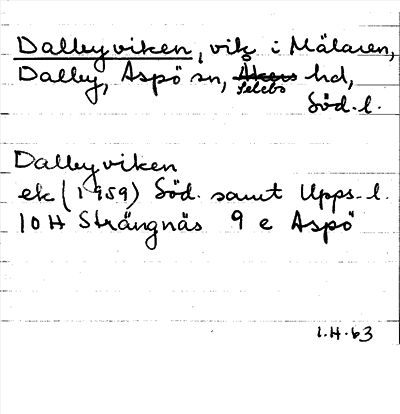 Dalbyviken, vik i Mälaren,
Dalby, Aspö sn, Åkers hd,
Selebo
Söd. l.
Dalbyviken
ek (1959) Söd. samt Upps. l.
10H Strängnäs 9 e Aspö
1.H.63